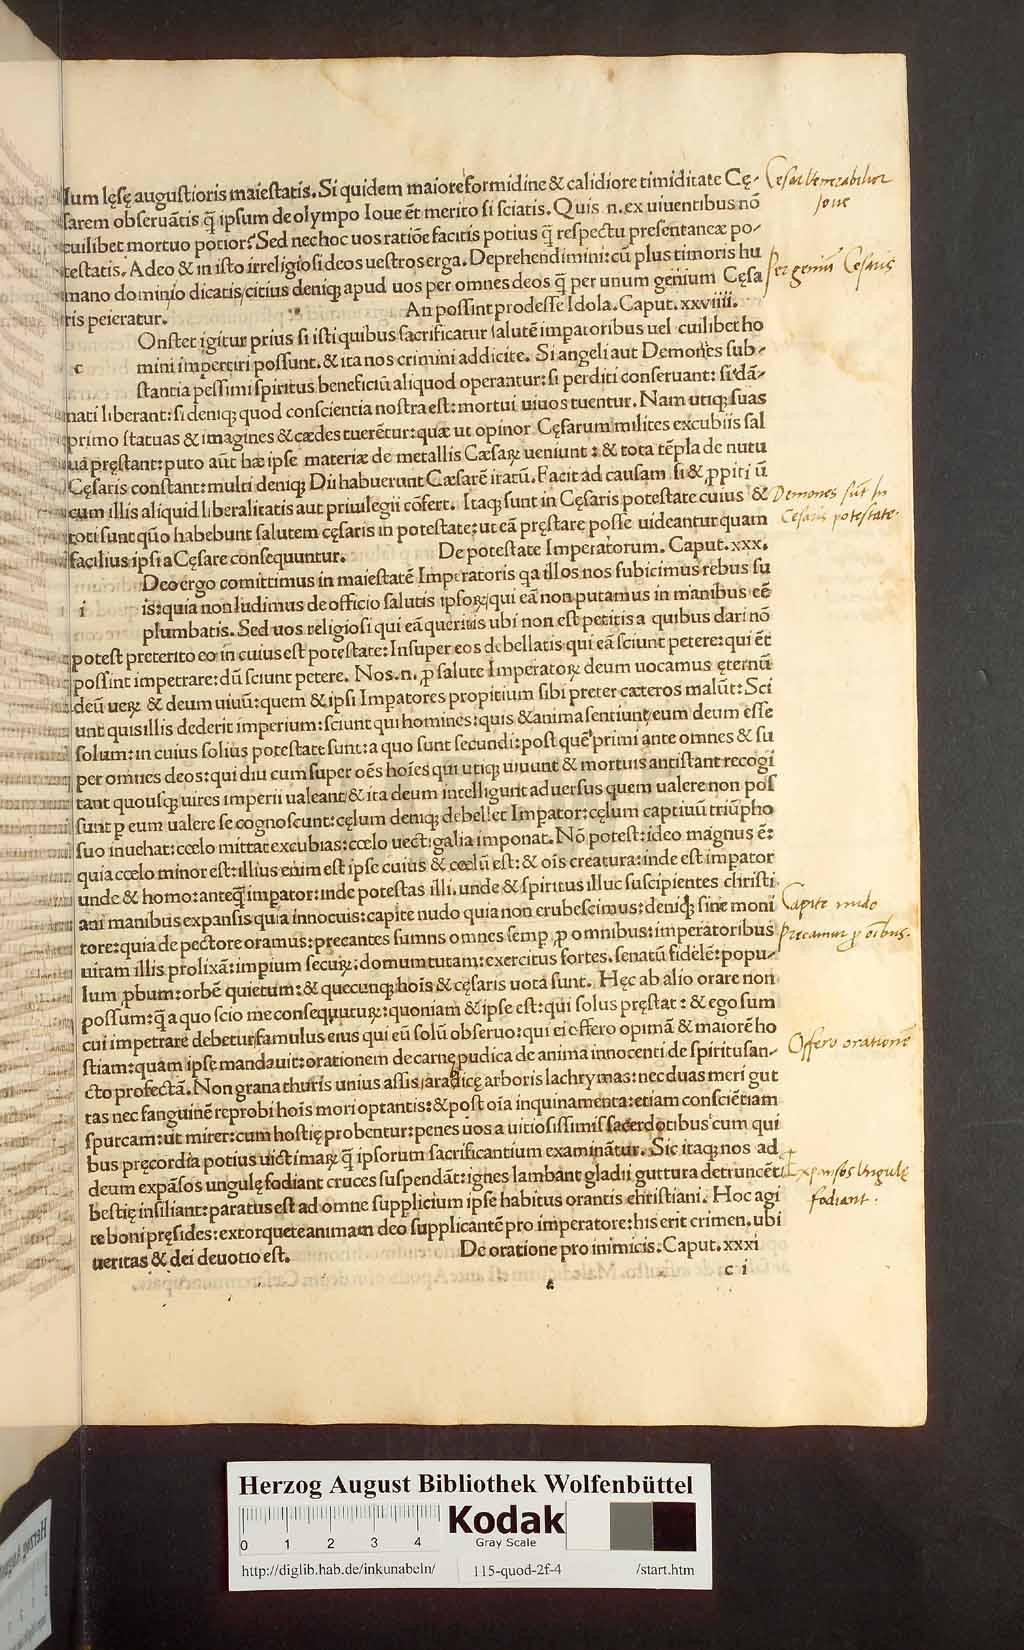 lum lęsę augustioris maiestatis. Si quidem maiore formidine & calidiore timiditate Cę-
sarem obseruātis q̄ ipsum de olympo Ioue ēt merito si sciatis. Quis .n. ex uiuentibus nō
cuilibet mortuo potior? Sed nec hoc uos ratiōe facitis potius q̄ respectu presentaneæ po-
testatis. Adeo & in isto irreligiosi deos uestros erga. Deprehendimini: cū plus timoris hu
mano dominio dicatis/citius deniq; apud uos per omnes deos q̄ per unum genium Cęsa
ris peieratur. An possint prodesse Idola. Caput. xxviiii.
Onstet igitur prius si isti quibus sacrificatur salutē impatoribus uel cuilibet ho
c mini impertiri possunt. & ita nos crimini addicite. Si angeli aut Demones sub-
stantia pessimi spiritus beneficiū aliquod operantur: si perditi conseruant: si dā-
nati liberant: si deniq; quod conscientia nostra est: mortui uiuos tuentur. Nam utiq; suas
primo statuas & imagines & cædes tuerētur: quæ ut opinor Cęsarum milites excubiis sal
ua pręstant: puto aūt hæ ipse materiæ de metallis Cæsarꝝ ueniunt: & tota tēpla de nutu
Cęsaris constant: multi deniq; Dii habuerunt Cæsarē iratū. Facit ad causam si & ꝓpitiū
cum illis aliquid liberalitatis aut priuilegii cōfert. Itaq; sunt in Cęsaris potestate cuius &
toti sunt quō habebunt salutem cęsaris in potestate: ut eā pręstare posse uideantur quam
facilius ipsi a Cęsare consequuntur. De potestate Imperatorum. Caput. xxx.
Deo ergo comittimus in maiestatē Imperatoris qa illos nos subicimus rebus su
i is: quia non ludimus de officio salutis ipsoꝝ/qui eā non putamus in manibus eē
plumbatis. Sed uos religiosi qui eā queritis ubi non est petitis a quibus dari nō
potest preterito eo in cuius est potestate: Insuper eos debellatis qui eā sciunt petere: qui ēt
possint impetrare: dū sciunt petere. Nos .n. ꝓ salute Imperatoꝝ deum uocamus ęternū
deū ueꝝ & deum uiuū: quem & ipsi Impatores propitium sibi preter cæteros malūt: Sci
unt quis illis dederit imperium: sciunt qui homines: quis & anima sentiunt/eum deum esse
solum: in cuius solius potestate sunt: a quo sunt secundi: post quē primi ante omnes & su
per omnes deos: qui diu cum super oēs hoīes qui utiq; uiuunt & mortuis antistant recogi
tant quousq; uires imperii ualeant/& ita deum intelligunt aduersus quem ualere non pos
sunt p eum ualere se cognoscunt: cęlum deniq; debellet Impator: cęlum captiuū triūpho
suo inuehat: cœlo mittat excubias: cœlo uectigalia imponat. Nō potest: ideo magnus ē:
quia cœlo minor est: illius enim est ipse cuius & cœlū est: & oīs creatura: inde est impator
unde & homo: anteq̄ impator: inde potestas illi. unde & spiritus illuc suscipientes christi
ani manibus expansis quia innocuis: capite nudo quia non erubescimus: deniq; sine moni
tore: quia de pectore oramus: precantes sumus omnes semp ꝓ omnibus: imperatoribus
uitam illis prolixā: impium secuꝝ: domum tutam: exercitus fortes. senatū fidelē: popu-
lum pbum: orbē quietum: & quecunq; hoīs & cęsaris uota sunt. Hęc ab alio orare non
possum: q̄ a quo scio me consequuturꝝ: quoniam & ipse est: qui solus pręstat: & ego sum
cui impetrare debetur/famulus eius qui eū solū obseruo: qui ei offero opimā & maiorē ho
stiam: quam ipse mandauit: orationem de carne pudica de anima innocenti de spiritu san-
cto profectā. Non grana thuris unius assis/aradicę arboris lachrymas: nec duas meri gut
tas nec sanguinē reprobi hoīs mori optantis: & post oīa inquinamenta: etiam consciētiam
spurcam: ut mirer: cum hostię probentur: penes uos a uitiosissimis sacerdotibus cum qui
bus pręcordia potius uictimaꝝ q̄ ipsorum sacrificantium examinātur. Sic itaq; nos ad
deum expāsos ungulę fodiant cruces suspendāt: ignes lambant gladii guttura detruncēt:
bestię insiliant: paratus est ad omne supplicium ipse habitus orantis christiani. Hoc agi
te boni pręsides: extorquete animam deo supplicantē pro imperatore: his erit crimen. ubi
ueritas & dei deuotio est. De oratione pro inimicis. Caput. xxxi
c i
Cesar Venerabilior
Joue
Per geniū Cesaris
Demones sūt In
Cesaris potestate.
Capite nudo
Precamur ꝓ oībus.
Offero orationē
Expansos Ungulę
fodiant.
Herzog August Bibliothek Wolfenbüttel
0 1 2 3 4
Kodak
Gray Scale
http://diglib.hab.de/inkunabeln/ 115-quod-2f-4 /start.htm